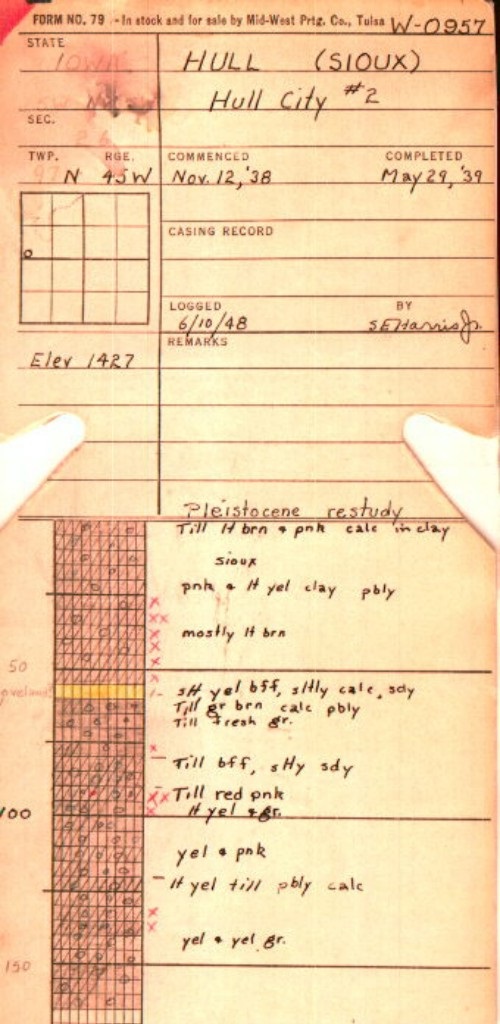 FORM NO. 79 - In stock and for sale by Mid-West Prtg. Co., Tulsa W-0957
STATE
IOWA
HULL (SIOUX)
Hull City #2
SEC.
TWP. RGE.
97 N 45W
COMMENCED COMPLETED
Nov. 12, '38 May 29, '39
CASING RECORD
LOGGED BY
6/10/48 SEHarrisJr.
REMARKS
Elev 1427
Pleistocene restudy
Till lt brn & pnk calc in clay
sioux
pnk & lt yel clay pbly
mostly lt brn
50
slt yel bff, sltly calc, sdy
Till gr brn calc pbly
Till fresh gr.
Till bff, slty sdy
Till red pnk
100
lt yel & gr.
yel & pnk
lt yel till pbly calc
yel & yel gr.
150